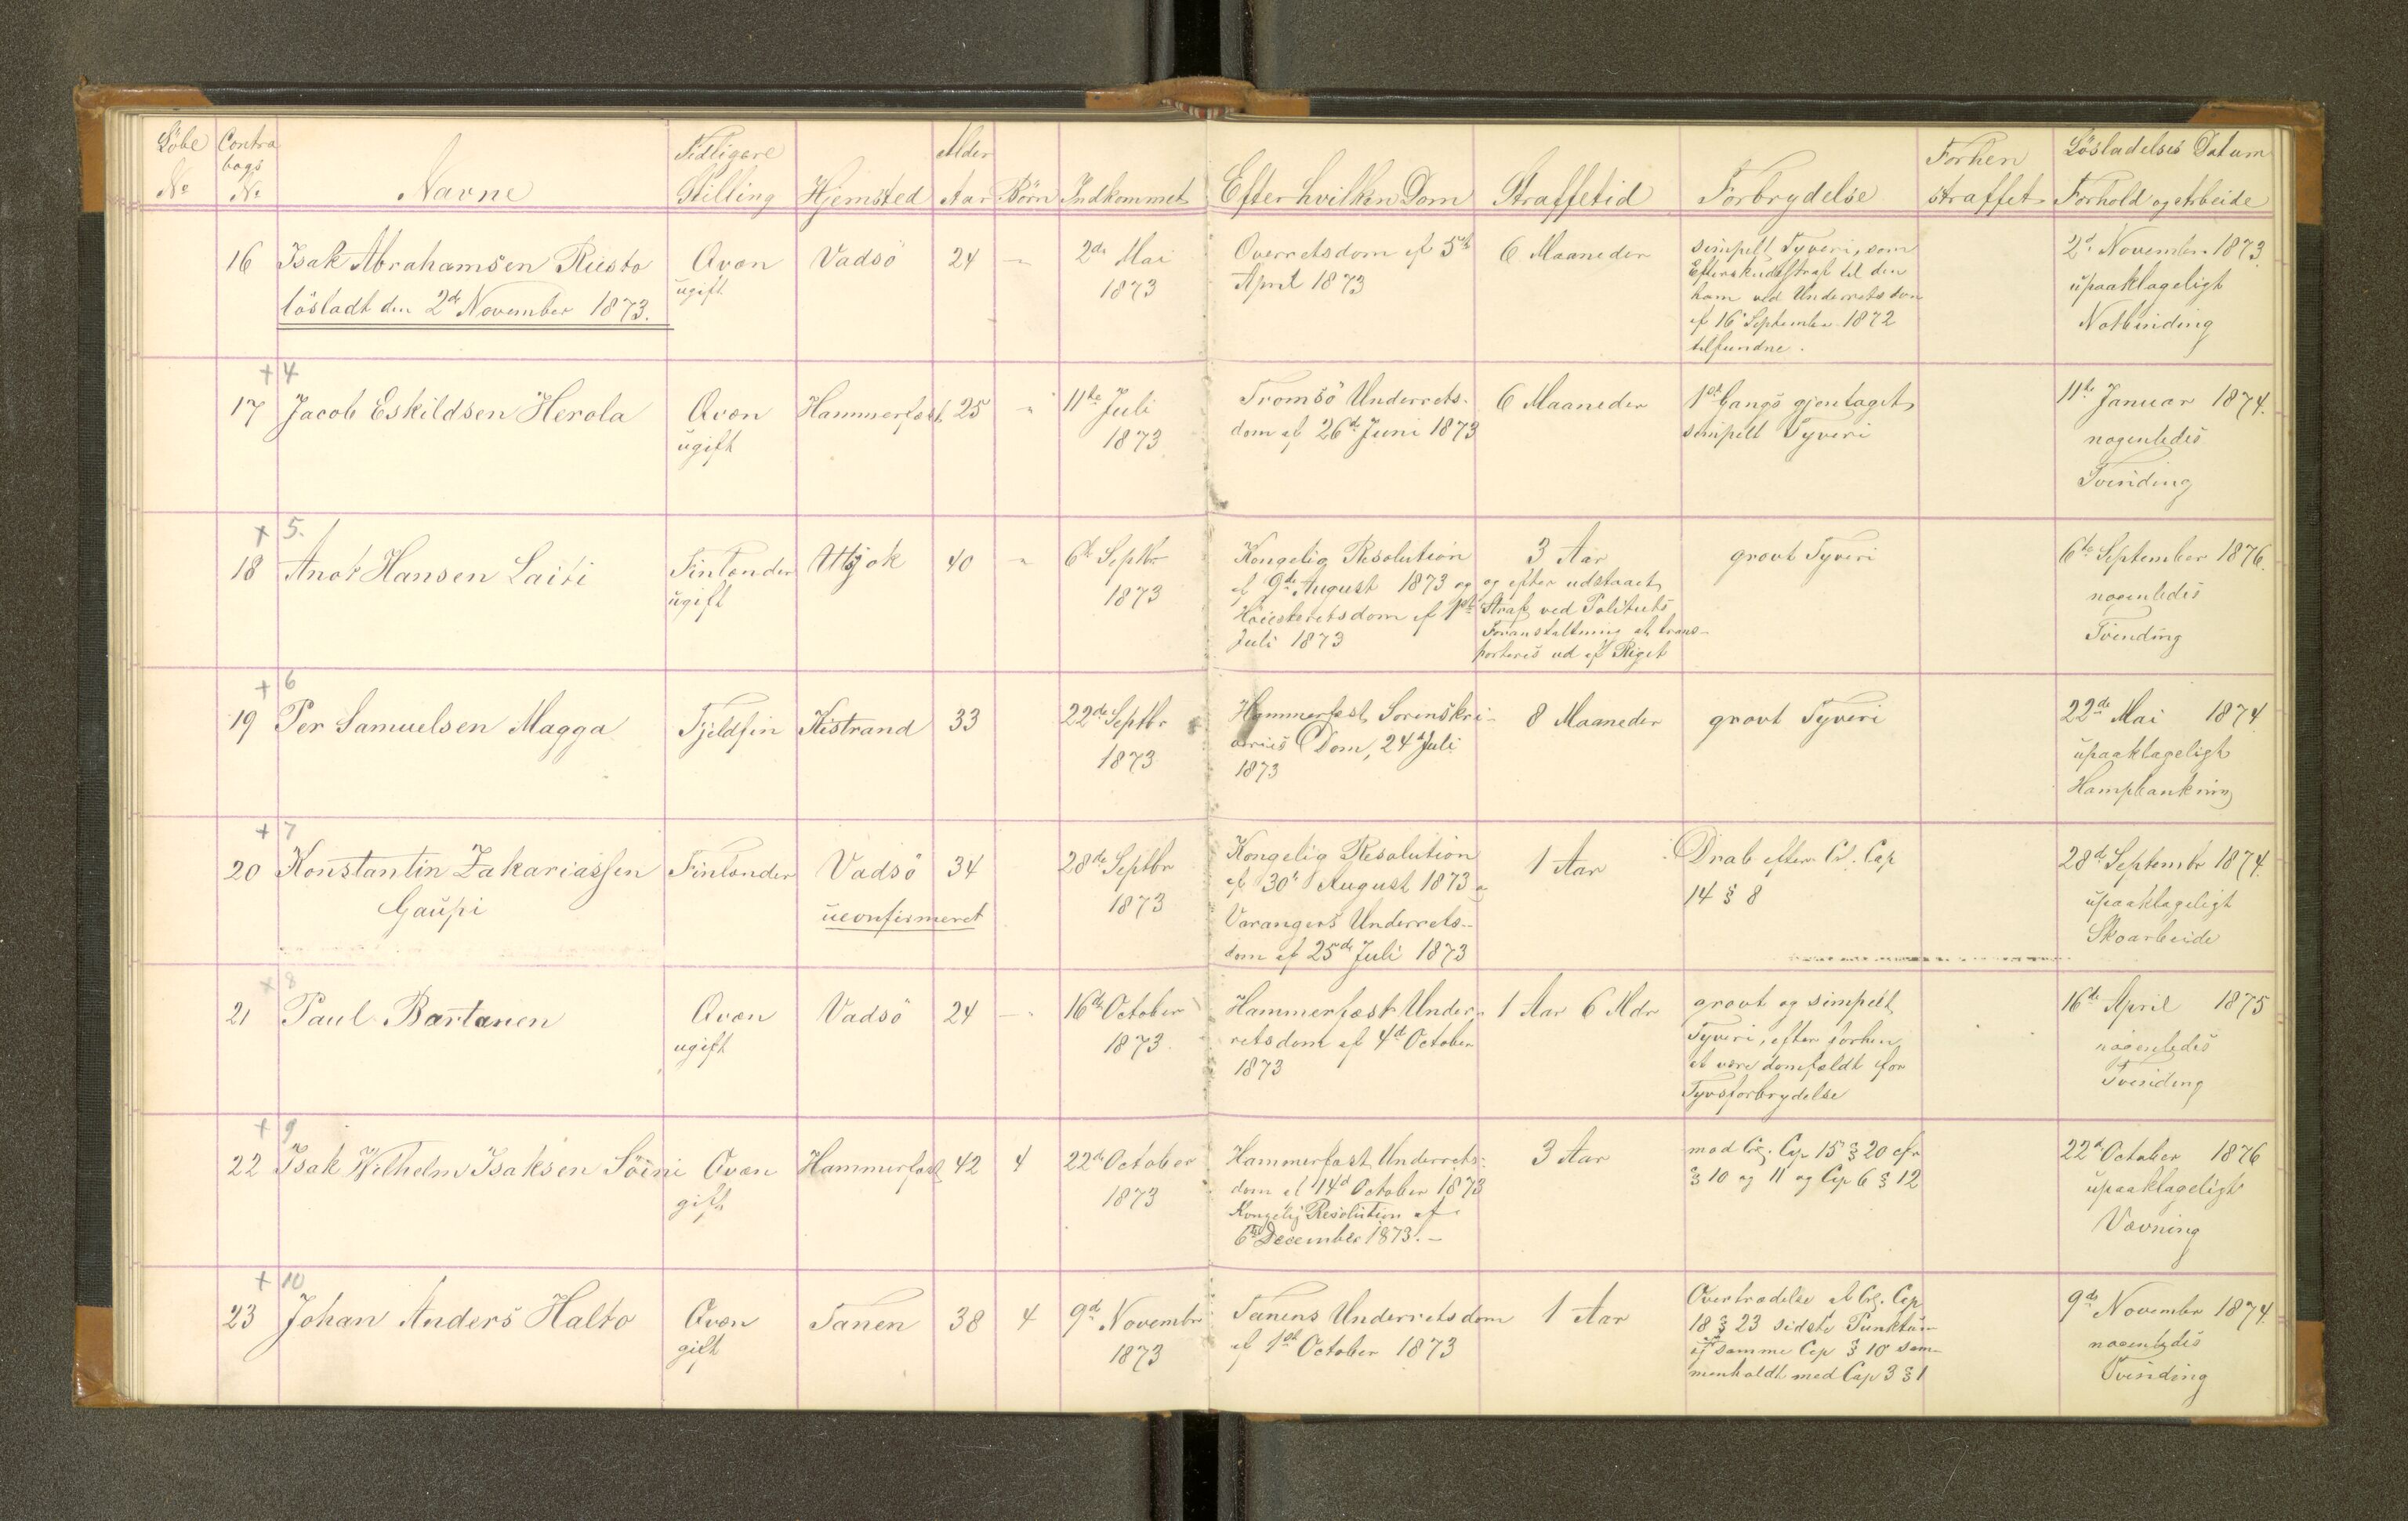 Löbe Contra Tidligere Alder Forhen Lösladelses Datum
No bogs No Navne Stilling Hjemsted Aar Börn Indkommet Efter hvilken Dom Straffetid Forbrydelse straffet Forhold og Arbeide
16 Isak Abrahamsen Rusto Qvæn Vadsö 24 - 2de Mai Overretsdom af 5te 6 Maaneder simpelt Tyveri, som 2de November 1873
löstadt den 2de November 1873. ugift 1873 April 1873 til den upaaklageligt
ham ved Underretsdom Notbinding
af 16 September 1872
tilfundne.
+ 4
17 Jacob Eskildsen Herola Qvæn Hammerfest 25 " 11te Juli Tromsö Underrets- 6 Maaneder 1ste Gangs gjentaget 11te Januar 1874.
ugift 1873 dom af 26de Juni 1873 simpelt Tyveri nogenledes
Tvinding
+ 5.
18 Anot Hansen Laiti Finlænder Utsjok 40 " 6te Septbr Kongelig Resolution 3 Aar grovt Tyveri 6te September 1876.
ugift 1873 af 9de August 1873 og og efter udstaaet nogenledes
Höiesteretsdom af 1ste Straf ved Politiets Tvinding
Juli 1873 Foranstaltning at trans-
porteres ud af Riget
+ 6
19 Per Samuelsen Magga Fjeldfin Kistrand 33 22de Septbr Hammerfest Sorenskri- 8 Maaneder grovt Tyveri 22de Mai 1874
1873 veries Dom, 24de Juli upaaklageligt
1873 Hampbankning
+ 7
20 Konstantin Zakariassen Finlænder Vadsö 34 28de Septbr Kongelig Resolution 1 Aar Drab efter Cl. Cap 28de Septembr 1874.
Gaupi uconfirmeret 1873 af 30te August 1873 og 14 § 8 upaaklageligt
Varangers Underrets- Skoarbeide
dom af 25de Juli 1873
+ 8
21 Paul Bartanen Qvæn Vadsö 24 - " 16de October Hammerfest Under- 1 Aar 6 Mdr grovt og simpelt 16de April 1875
ugift 1873. retsdom af 4de October Tyveri, efter forhen nogenledes
1873 at være domfældt for Tvinding
Tyvsforbrydelse
+ 9
22 Isak Wilhelm Isaksen Söini Qvæn Hammerfest 42 4 22de October Hammerfest Underrets- 3 Aar mod Crl. Cap 15 § 20 cfr 22de October 1876
gift 1873 dom af 14de October 1873 § 10 og 11 og Cap 6 § 12 upaaklageligt
Kongelig Resolution af Vævning
6te December 1873. -
+ 10
23 Johan Anders Halto Qvæn Tanen 38 4 9de Novembr Tanens Underretsdom 1 Aar Overtrædelse af Crl. Cap 9de Novembr 1874.
gift 1873 af 1ste October 1873 18 § 23 sidste Punktum nogenledes
cfr samme Cap § 10 sam- Tvinding
menholdt med Cap 3 § 1